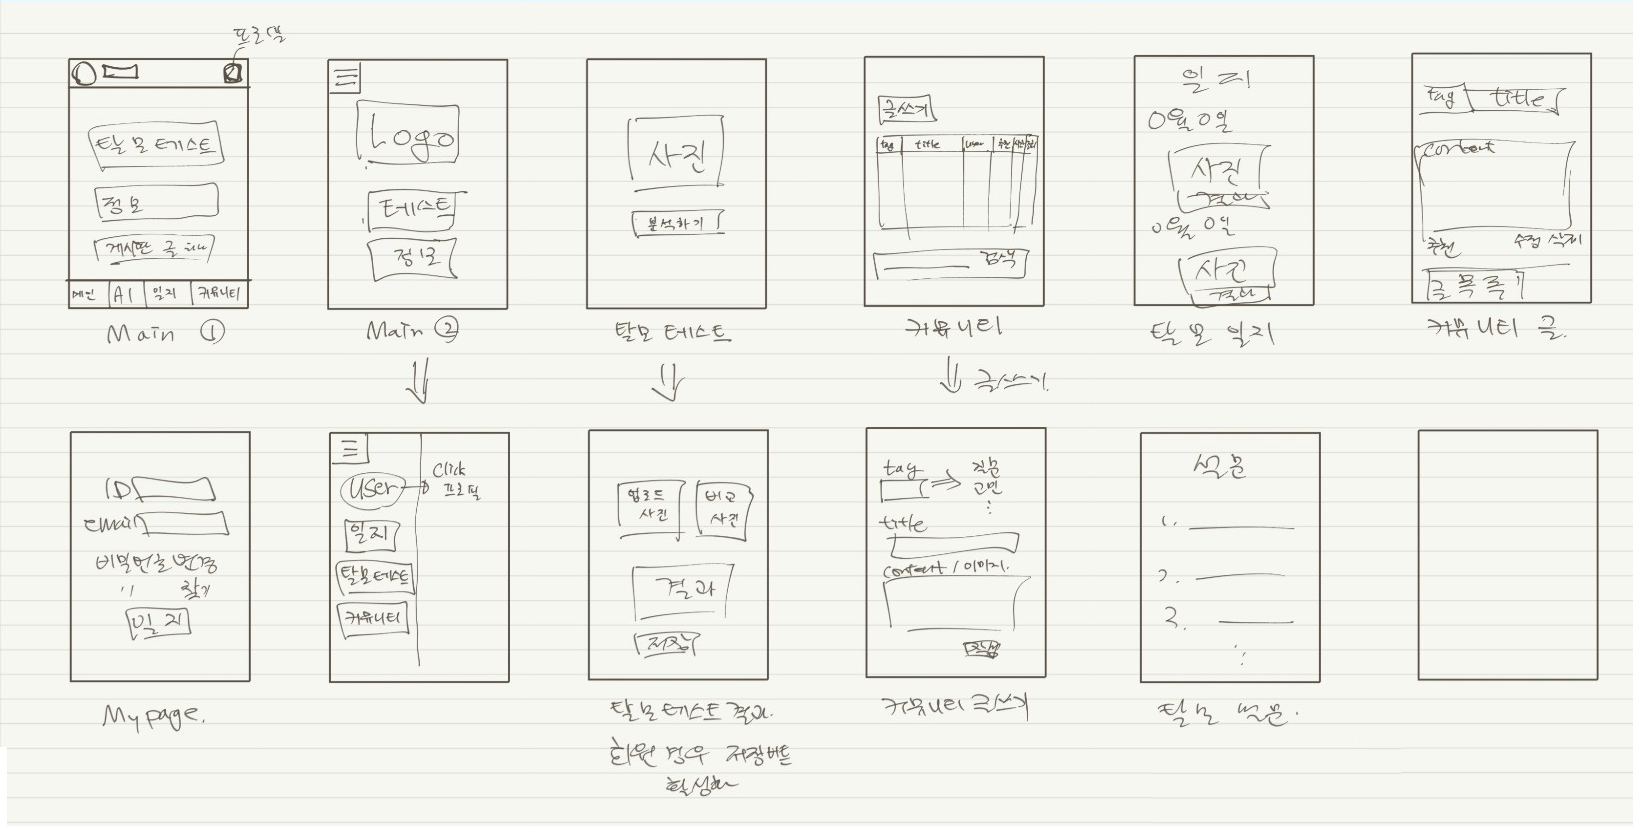 프로필
탈모 테스트
정보
게시판 글
메인 AI 일지 커뮤니티
Main ①
Logo
테스트
정보
Main ②
사진
분석하기
탈모 테스트
글쓰기
tag title user 추천
검색
커뮤니티
글쓰기
일지
0월 0일
사진
결과
0월 0일
사진
결과
탈모 일지
tag title
content
추천 수정 삭제
글 목록
커뮤니티 글.
ID
email
비밀번호 변경
" 찾기
일지
My page.
user
Click
프로필
일지
탈모테스트
커뮤니티
업로드
사진
비교
사진
결과
저장
탈모 테스트 결과.
회원 경우 저장버튼
활성화
tag
질문
고민
title
content / 이미지.
작성
커뮤니티 글쓰기
설문
1.
2.
3.
탈모 설문.